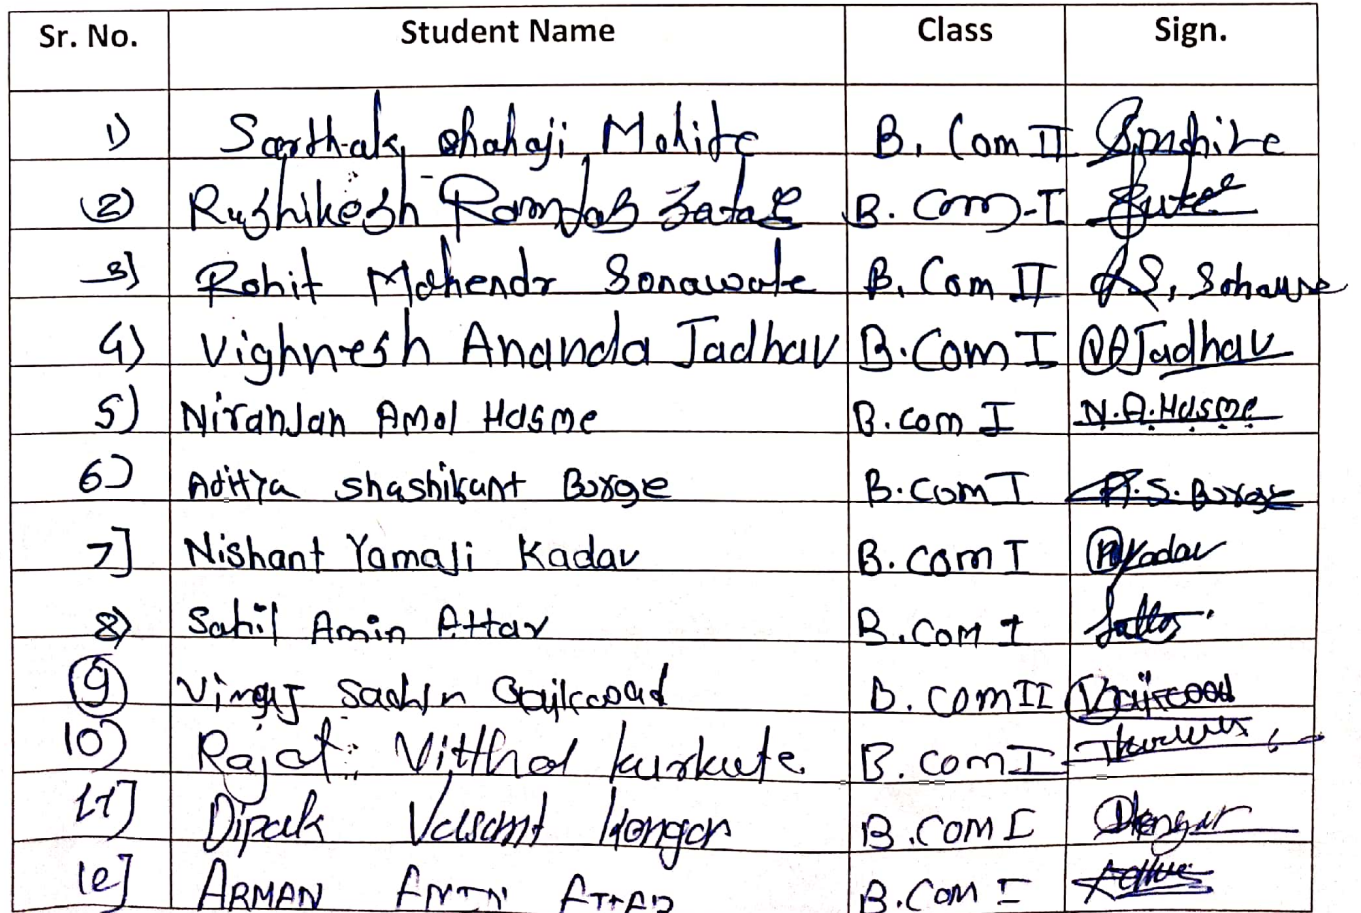 Sr. No. Student Name Class Sign.
1) Sarthak Shahaji Mohite B. Com II
2) Rushikesh Ramdas B. Com-I
3] Rohit Mahendr Sonawale B. Com II
4) Vighnesh Ananda Jadhav B.Com I VAJadhav
5) Niranjan Amol Hasme B.com I N.A.Hasme
6) Aditya Shashikant Borge B.com I A.S. Borge
7] Nishant Yamaji Kadav B.com I
8) Sahil Amin Attar B.com I
9 Sachin Gaikwad B. com II
10) Rajat Vitthal kurkute B. com I
11] Dipak Vasant Hengar B.com I
12] ARMAN AMIN ATTAR B.Com I